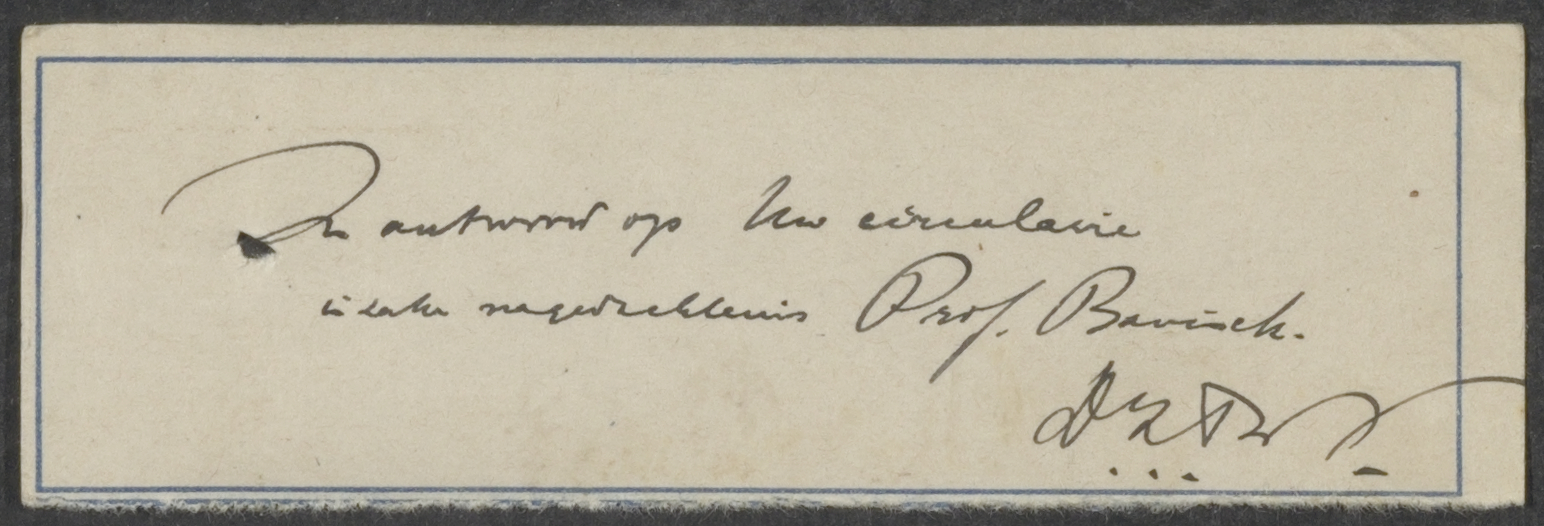 In antwoord op Uw circulaire
inzake nagedachtenis Prof. Bavinck.